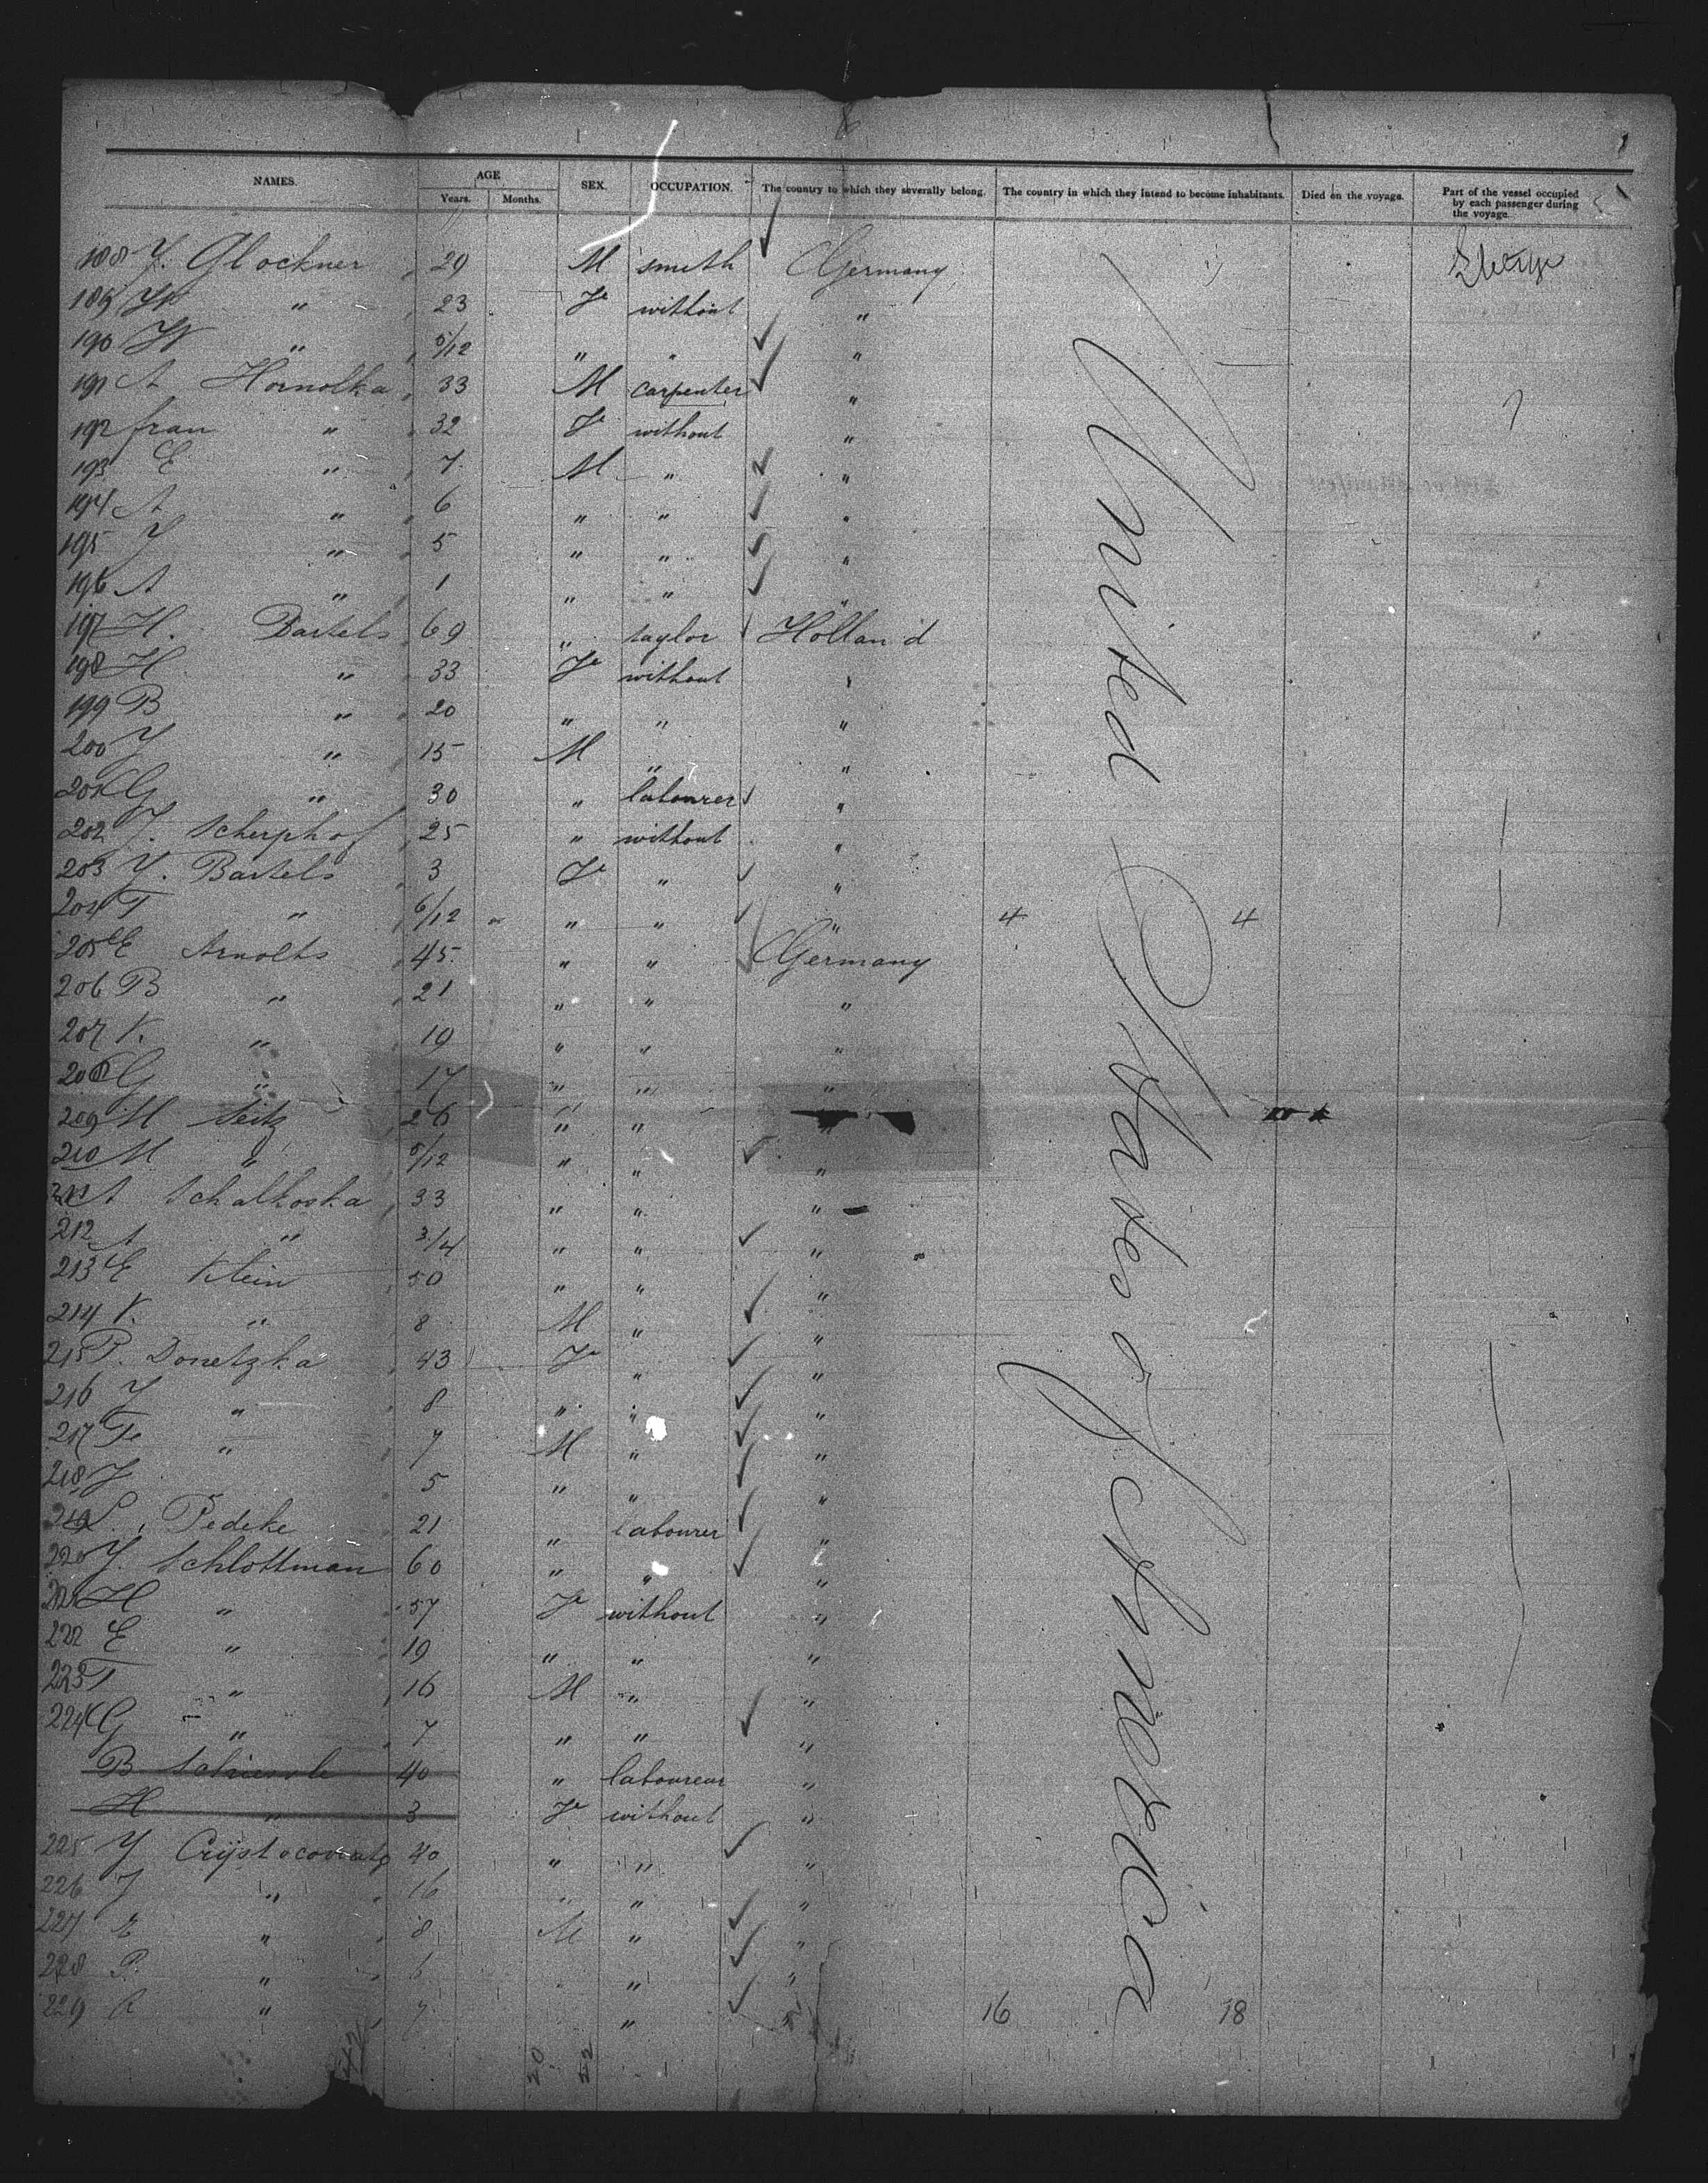 8
NAMES. AGE Years. Months. SEX. OCCUPATION. The country to which they severally belong. The country in which they intend to become inhabitants. Died on the voyage. Part of the vessel occupied by each passenger during the voyage.
188 J. Glockner 29 M smith Germany
189 W " 23 Fe without "
190 W " 5/12 " " "
191 A Hornolka 33 M carpenter "
192 frau " 32 Fe without "
193 E " 7 M " "
194 A " 6 " " "
195 J " 5 " " "
196 A " 1 " " "
197 H. Bartels 69 " taylor Holland
198 H " 33 Fe without "
199 B " 20 " " "
200 J " 15 M " "
201 G " 30 " labourer "
202 J. Scherphof 25 " without "
203 Y. Bartels 3 Fe " "
204 T " 6/12 " " " 4 4
205 E Arnolts 45 " " Germany
206 B " 21 " " "
207 K. " 19 " " "
208 G " 17 " " "
209 M Seitz 26 " " "
210 M " 5/12 " " "
211 A Schalkoska 33 " " "
212 A " 3/4 " " "
213 E Klein 50 " " "
214 K. " 8 M " "
215 P. Donetzka 43 Fe " "
216 J " 8 " " "
217 Fe " 7 M " "
218 J 5 " " "
219 L. Pedeke 21 " labourer "
220 J. Schlottman 60 " " "
221 H " 57 Fe without "
222 E " 19 " " "
223 T " 16 M " "
224 G " 7 " " "
B 40 " laboureur "
H " 3 Fe without "
225 Y 40 " " "
226 J " 16 " " "
227 " 8 M " "
228 P. " " "
229 R " 7 " " 16 18
20 22
United States of America